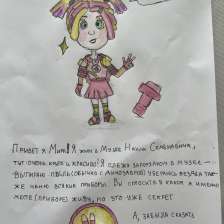 Привет я Мима! Я живу в Музее Николы
тут очень круто и красиво! Я слежу за порядком в музее –
вытираю пыль (обычно с динозавров) убираюсь везде а так
же чиню всякие приборы. Вы спросите в каком я именно
приборе живу, но это уже секрет
А, забыла сказать